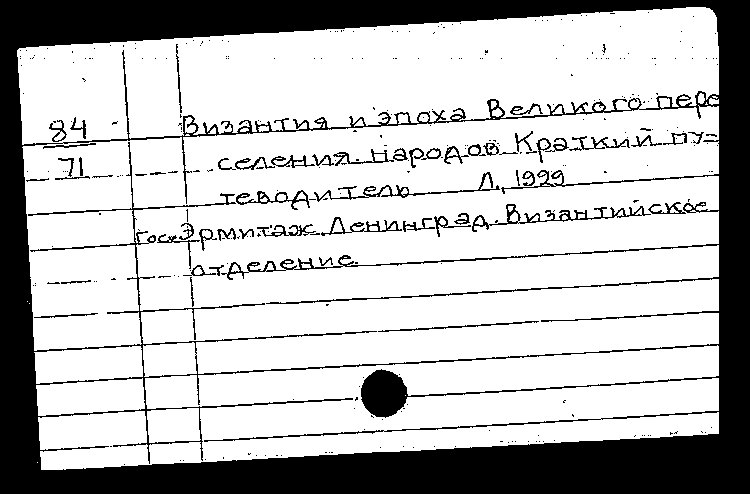 84
71
Византия и эпоха Великого пере
селения народов Краткий пу-
теводитель Л., 1929
Гос. Эрмитаж. Ленинград. Византийское
отделение.